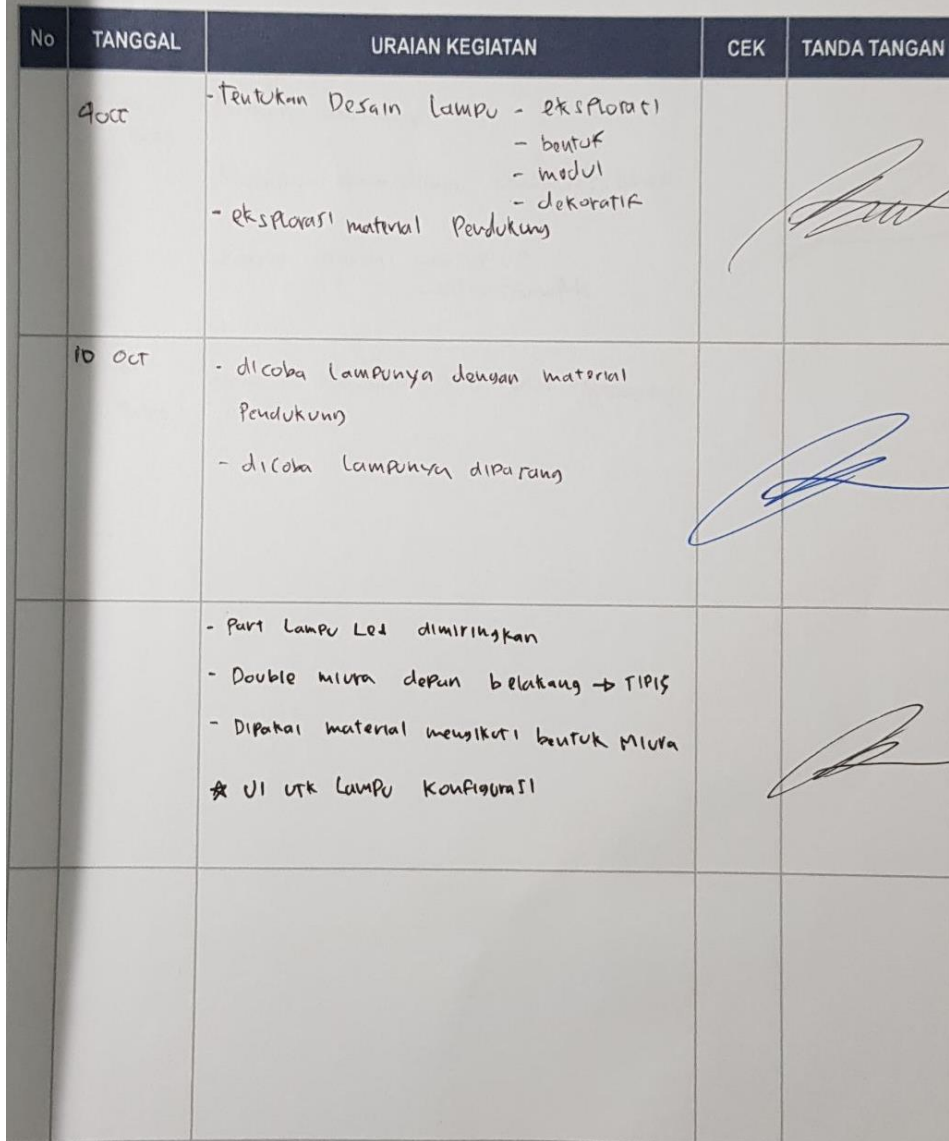 No TANGGAL URAIAN KEGIATAN CEK TANDA TANGAN
9 OCT
- Tentukan Desain Lampu - eksplorasi
- bentuk
- modul
- dekoratif
- eksplorasi material Pendukung
10 OCT
- dicoba lampunya dengan material
Pendukung
- dicoba lampunya dipasang
- Part Lampu Led dimiringkan
- Double miura depan belakang → TIPIS
- Dipakai material mengikuti bentuk Miura
☆ UI utk Lampu Konfigurasi